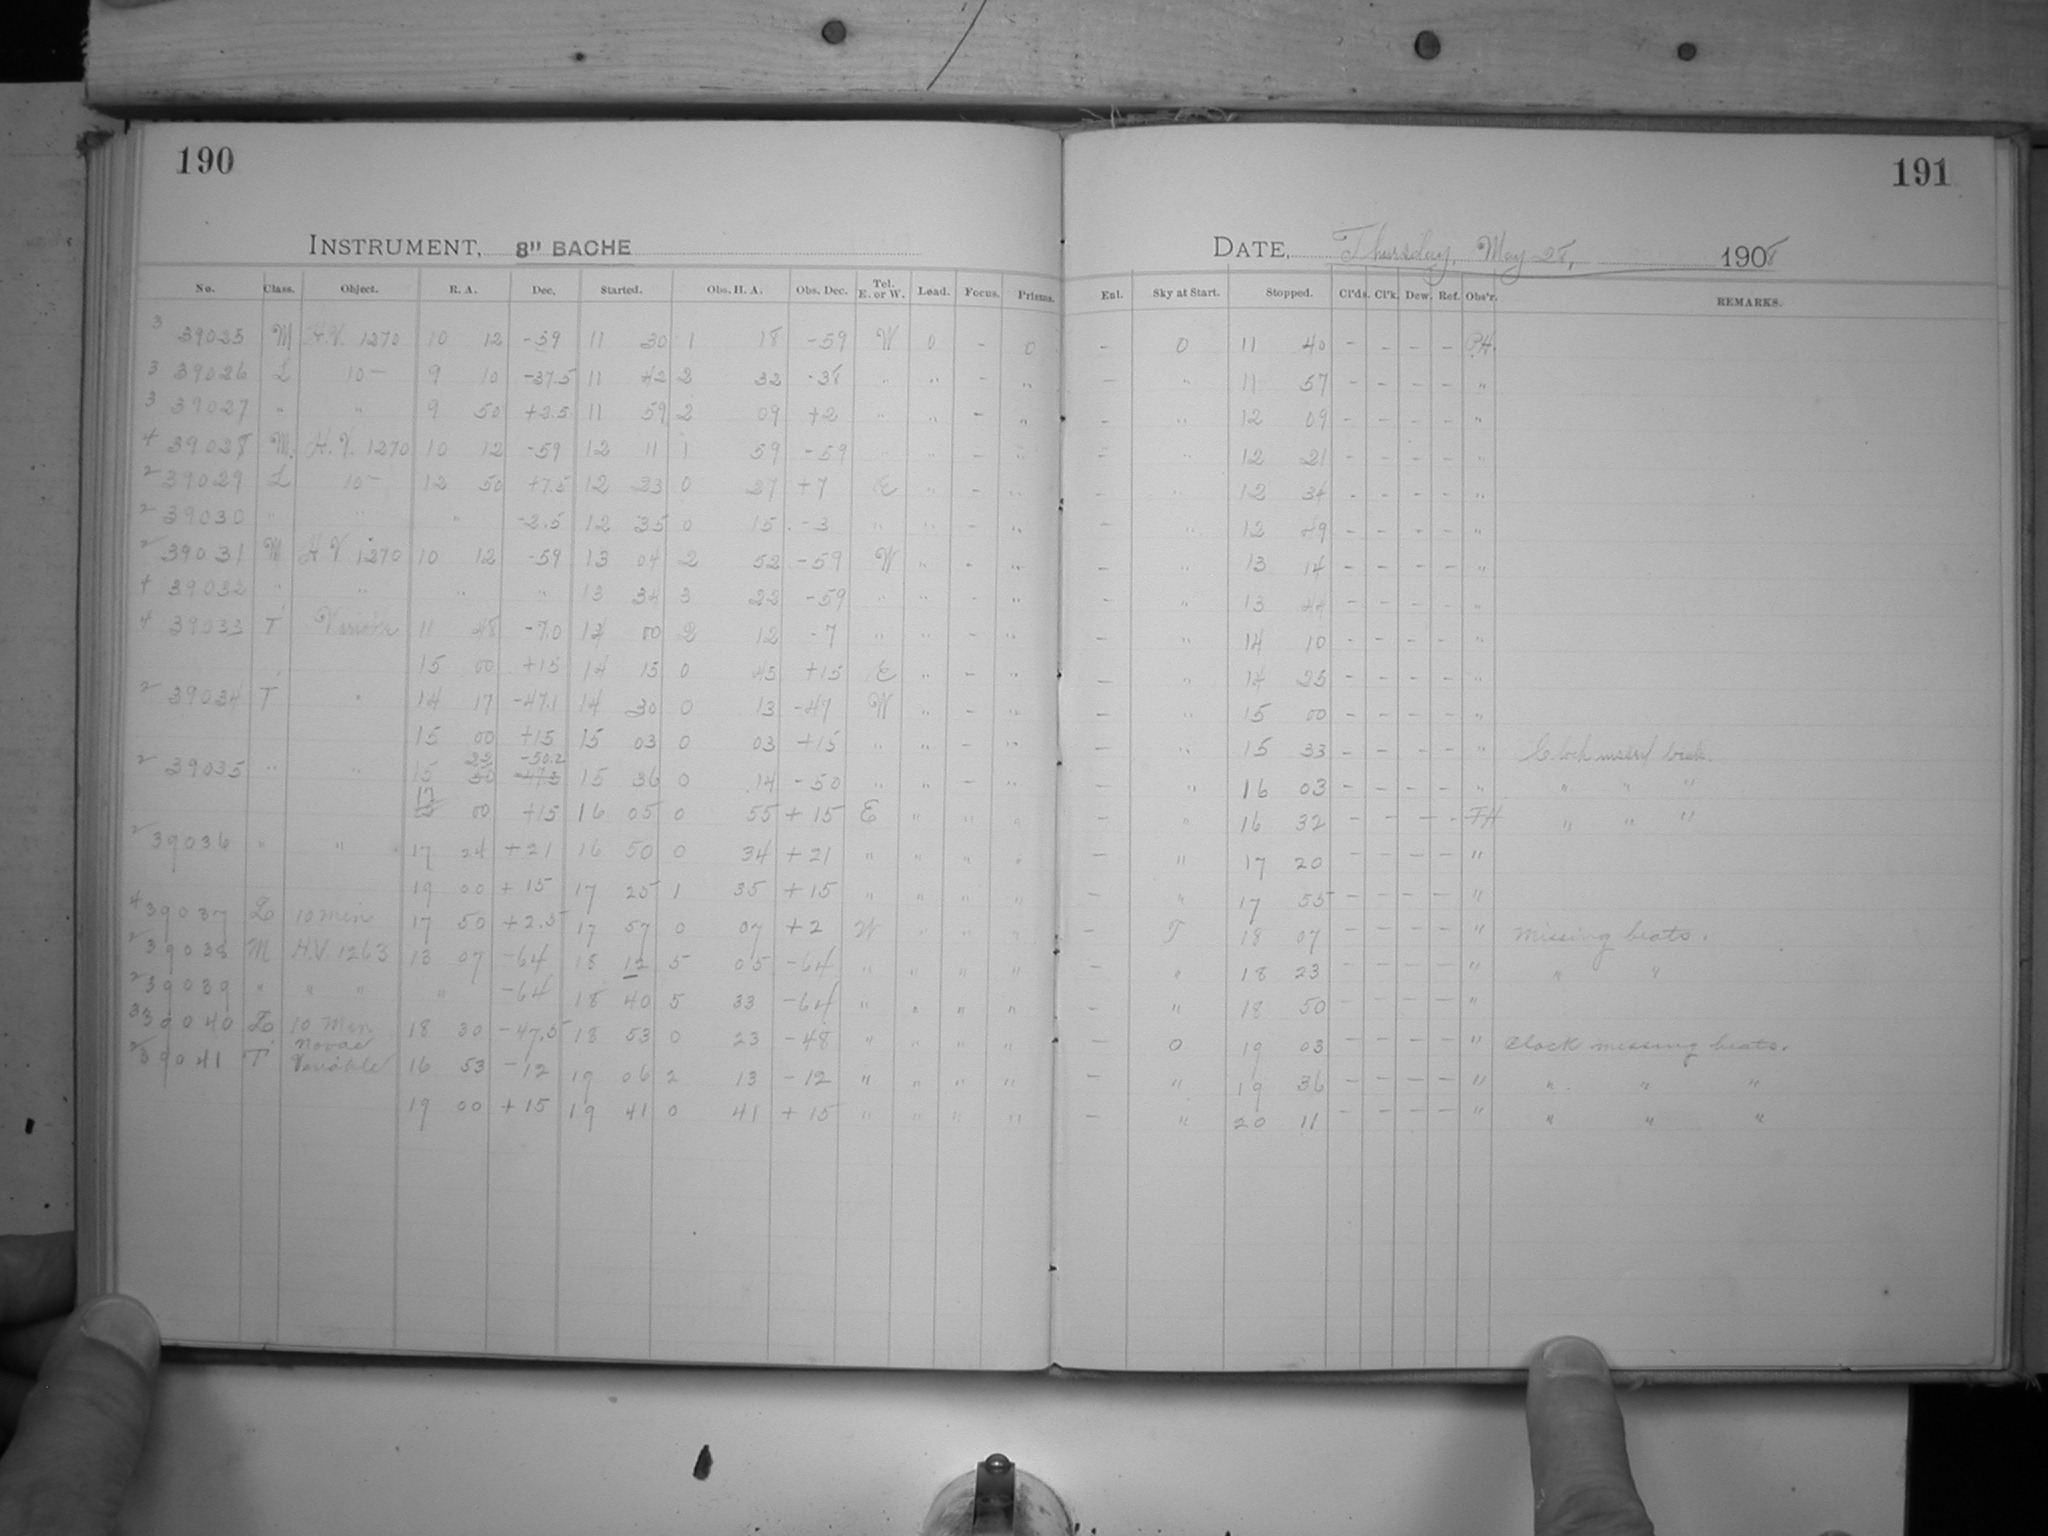 190
191
INSTRUMENT, 8" BACHE
DATE, Thursday, May 28, 1908
No. Class. Object. R. A. Dec. Started. Obs. H. A. Obs. Dec. Tel. E. or W. Load. Focus. Prisms. Enl. Sky at Start. Stopped. Cl'ds. Cl'k. Dew. Ref. Obs'r. REMARKS.
3 39025 M H.V. 1270 10 12 -59 11 30 1 18 -59 W 0 - 0 - 0 11 40 - - - - P.H.
3 39026 L 10- 9 10 -37.5 11 42 2 32 -38 " " - " - " 11 57 - - - - "
3 39027 " " 9 50 +2.5 11 59 2 09 +2 " " - " - " 12 09 - - - - "
4 39028 M. H.V. 1270 10 12 -59 12 11 1 59 -59 " " - " - " 12 21 - - - - "
2 39029 L 10- 12 50 +7.5 12 23 0 27 +7 E " - " - " 12 34 - - - - "
2 39030 " " " -2.5 12 35 0 15 -3 " " - " - " 12 49 - - - - "
2 39031 M H V 1270 10 12 -59 13 04 2 52 -59 W " - " - " 13 14 - - - - "
4 39032 " " " " 13 34 3 22 -59 " " - " - " 13 44 - - - - "
4 39033 T 11 48 -7.0 14 00 2 12 -7 " " - " - " 14 10 - - - - "
15 00 +15 14 15 0 45 +15 E " - " - " 14 25 - - - - "
2 39034 T " 14 17 -47.1 14 30 0 13 -47 W " - " - " 15 00 - - - - "
15 00 +15 15 03 0 03 +15 " " - " - " 15 33 - - - - " Clock beats.
22 -50.2
2 39035 " " 15 15 36 0 14 -50 " " - " - " 16 03 - - - - " " " "
17 00 +15 16 05 0 55 +15 E " " " - " 16 32 - - - - FH " " "
2 39036 " " 17 24 +21 16 50 0 34 +21 " " " " - " 17 20 - - - - "
19 00 +15 17 25 1 35 +15 " " " " - " 17 55 - - - - "
4 39037 L 10 min 17 50 +2.5 17 57 0 07 +2 W " " " - F 18 07 - - - - " Missing beats.
2 39038 M H.V. 1263 13 07 -64 18 12 5 05 -64 " " " " - " 18 23 - - - - " " "
2 39039 " " " " -64 18 40 5 33 -64 " " " " - " 18 50 - - - - "
3 39040 L 10 Min 18 30 -47.5 18 53 0 23 -48 " " " " - 0 19 03 - - - - " Clock missing beats.
Novae
2 39041 T Variable 16 53 -12 19 06 2 13 -12 " " " " - " 19 36 - - - - " " " "
19 00 +15 19 41 0 41 +15 " " " " - " 20 11 - - - - " " " "